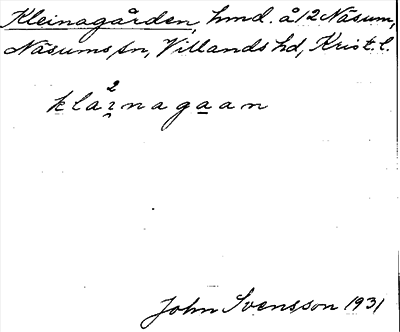 Kleinagården, hmd. å 12 Näsum,
Näsums sn, Villands hd, Krist. l.
John Svensson 1931